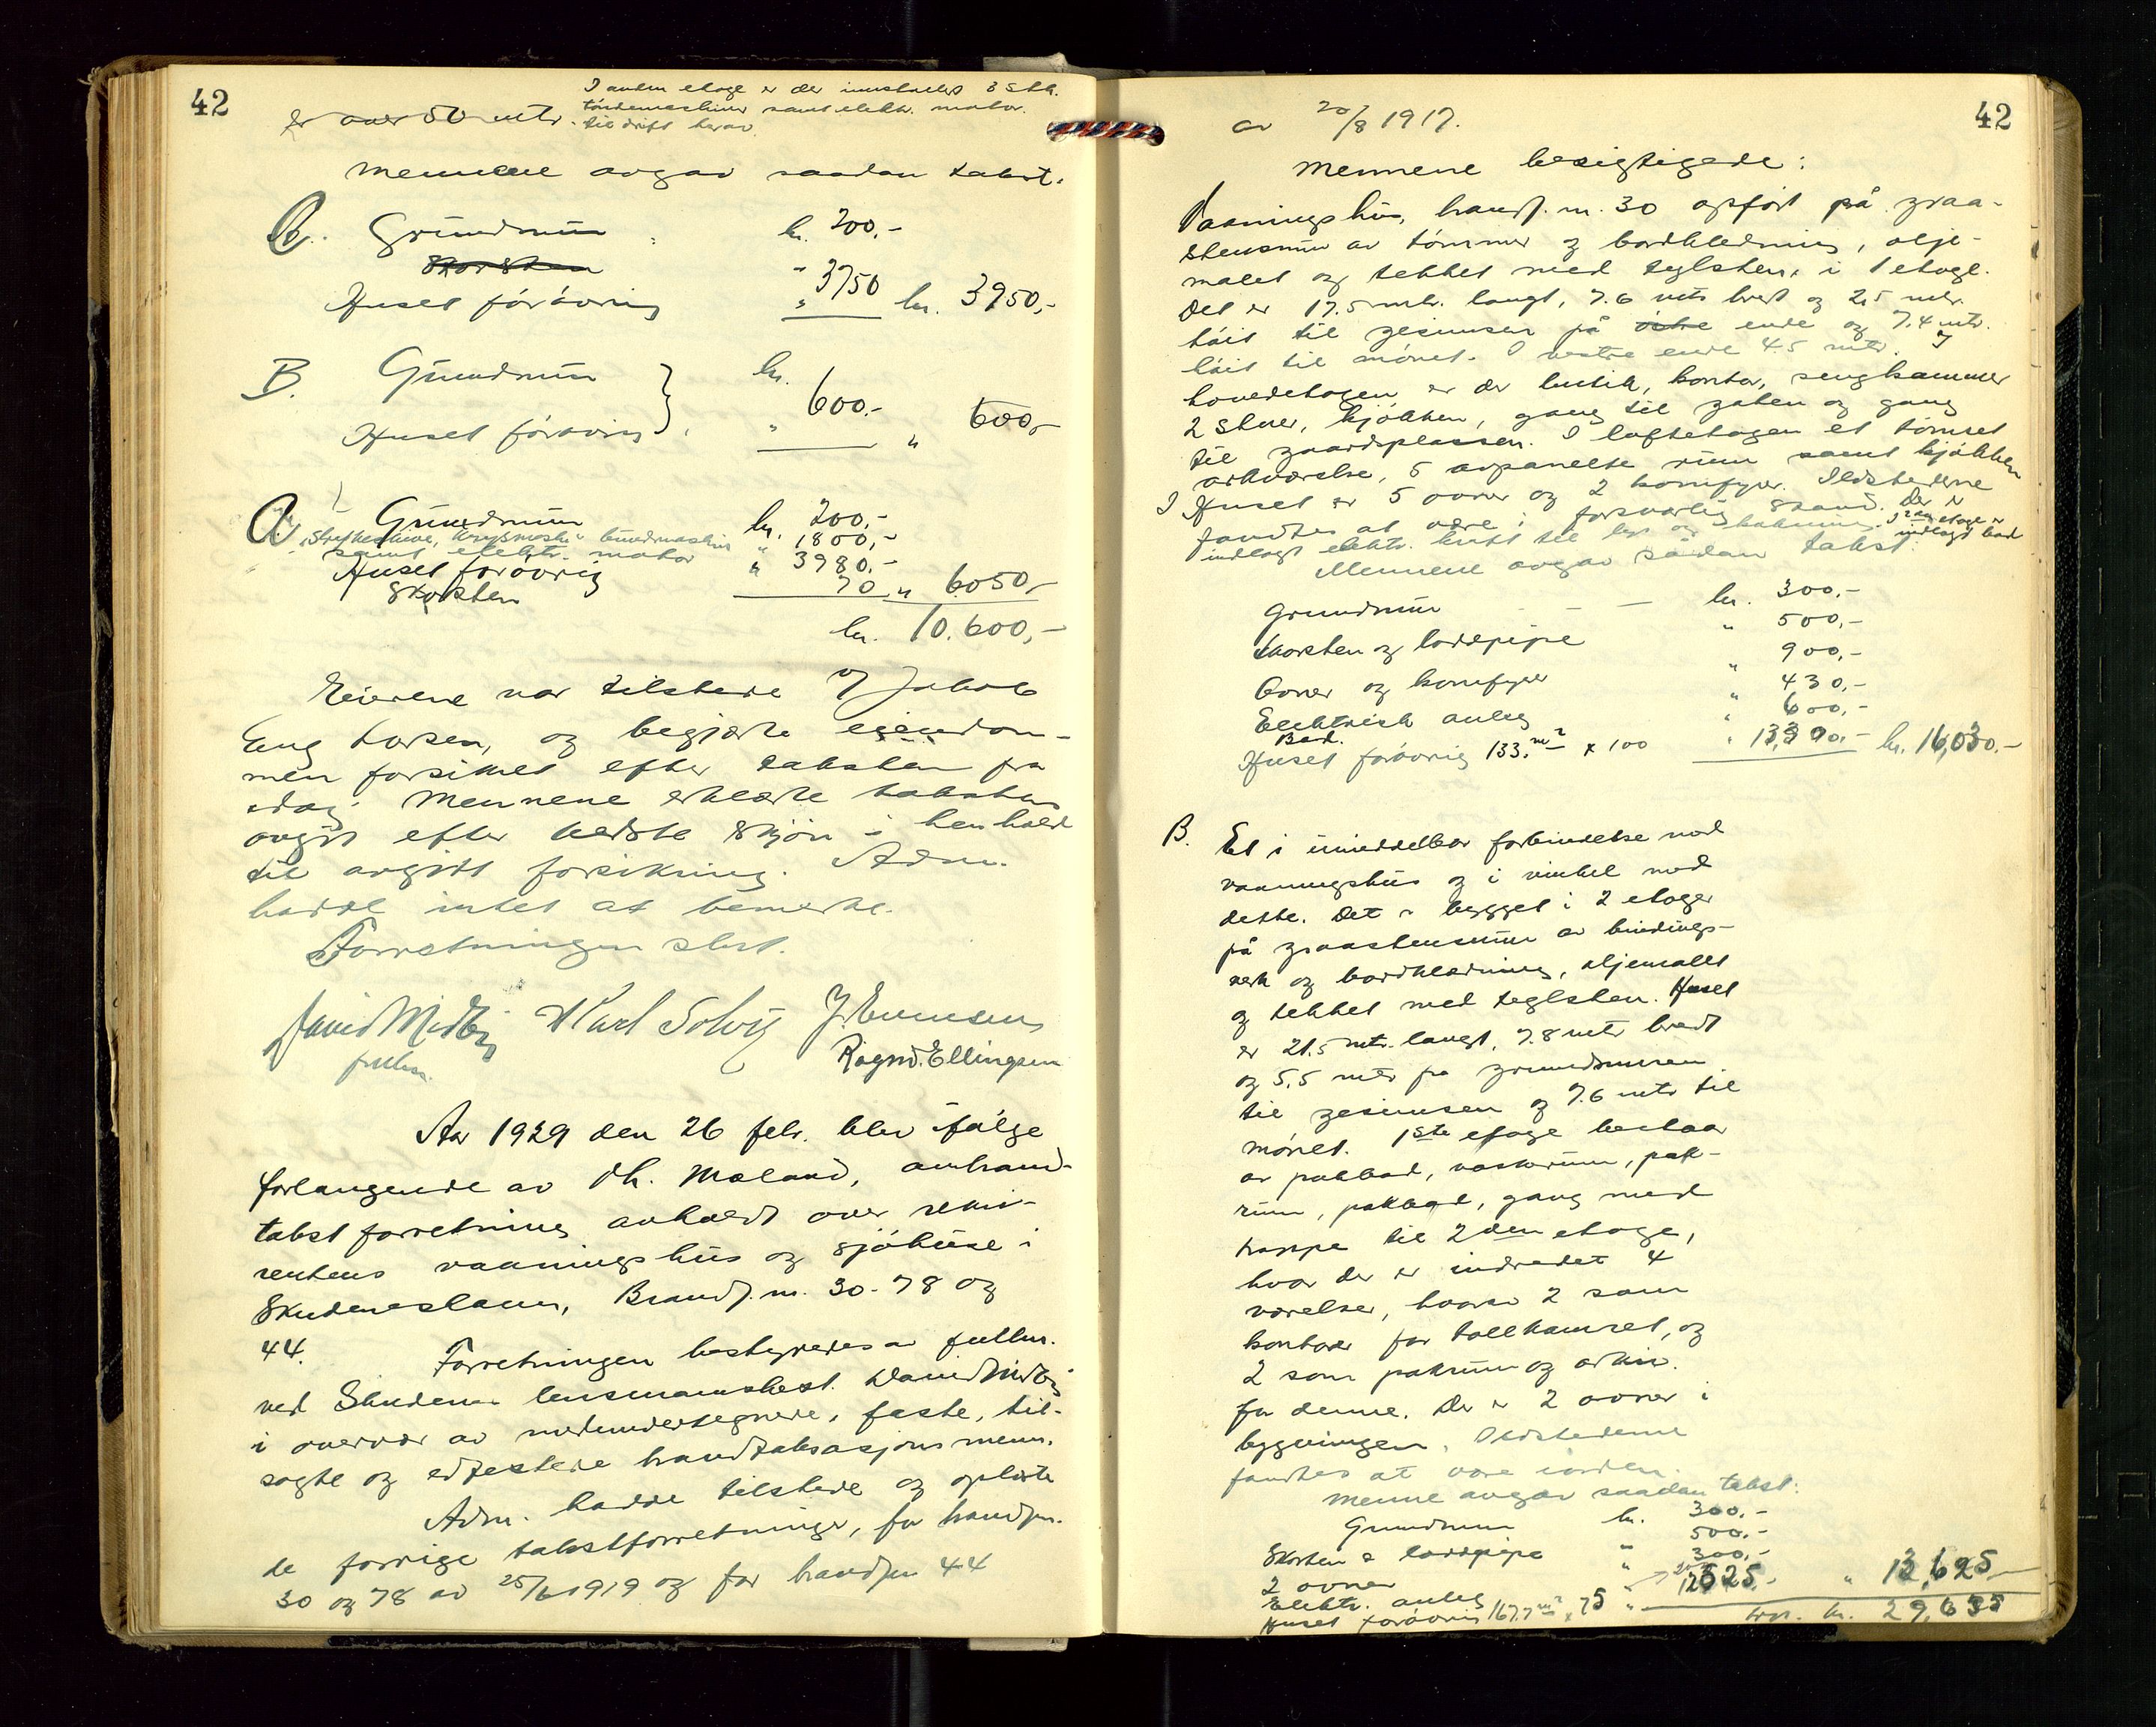 42
I anden etage er der innstalert 3 stk.
tøndemaskiner samt elektr. motor
til drift herav.
er over 50 mtr.
Mennene avgav saadan takst:
A. Grundmur kr. 200,-
Skorsten
Huset forøvrig " 3750 kr. 3950,-
B. Grundmur kr.
600.- 600,-
Huset forøvrig " "
C. Grundmur kr. 200,-
samt elektr. motor " 1800,-
Huset forøvrig " 3980.-
Skorsten 70 " 6050,-
kr. 10.600,-
Eierene var tilstede v/ Jakob
Eng Larsen, og begjærte eiendom-
men forsikret efter taksten fra
idag. Mennene erklærte taksten
avgit efter bedste skjøn i henhold
til avgitt forsikring. Adm.
hadde intet at bemerke.
Forretningen slut.
David Midbøe Karl Solvig J. Evensen
fullm. Ragnv. Ellingsen
Aar 1929 den 26 febr. blev ifølge
forlangende av Th. Mæland, ombrand-
takst forretning avholdt over rekvi-
rentens vaaningshus og sjøhuse i
Skudeneshavn, Brandf. nr. 30-78 og
44. Forretningen bestyredes av fullm.
ved Skudenes lensmannsbest. David Midbøe
i overvær av medundertegnede, faste, til-
sagte og edfestede brandtaksasjonsmenn.
Adm. hadde tilstede og oplæste
de forrige takstforretninger, for brandf.nr.
30 og 78 av 25/6 1919 og for brandf.nr 44
42
av 20/8 1917.
Mennene besigtigede:
Vaaningshus, brandf. nr. 30 opført på graa-
stensmur av tømmer og bordklædning, olje-
malet og tekket med teglsten, i 1 etage.
Det er 17.5 mtr. langt, 7.6 mtr bredt og 2,5 mtr.
høit til gesimsen på østre ende og 7.4 mtr.
høit til mønet. I vestre ende 4.5 mtr. I
hovedetagen er der butik, kontor, sengkammer
2 stuer, kjøkken, gang til gaten og gang
til gaardsplassen. I loftetagen et tømret
arkværelse, 5 avpanelte rum samt kjøkken
I Huset er 5 ovner og 2 komfyrer. Ildstederne
fandtes at være i forsvarlig stand. Der er
indlagt elektr. kraft til lys og kokning. I 2den etage er
indlagt bad
Mennene avgav sådan takst:
Grundmur kr. 300.-
Skorsten og loddpipe " 500,-
Ovner og komfyrer " 900,-
Elektrisk anleg " 430,-
Bad. " 600,-
Huset forøvrig 133. m² x 100 " 13,300.- kr. 16,030.-
B. Et i umiddelbar forbindelse med
vaaningshus og i vinkel med
dette. Det er bygget i 2 etager
på graastensmur av bindings-
verk og bordklædning, oljemalt
og tekket med teglsten. Huset
er 21.5 mtr. langt, 7.8 mtr bredt
og 5,5 mtr fra grundmuren
til gesimsen og 7.6 mtr til
mønet. 1ste etage bestaar
av pakbod, vaskerum, pak-
rum, pakbod, gang med
trappe til 2den etage,
hvor der er indredet 4
værelser, hvorav 2 som
kontorer for tollkamret, og
2 som pakrum og arkiv.
for denne. Der er 2 ovner i
bygningen. Ildstederne
fandtes at være i orden.
Menne avgav saadan takst:
Grundmur kr. 300.-
Skorsten & loddpipe " 500.-
2 ovner " 300,-
Elektr. anleg
Huset forøvrig 167.7 m² x 75 " 12525.- " 13,625,-
kr. 29,655